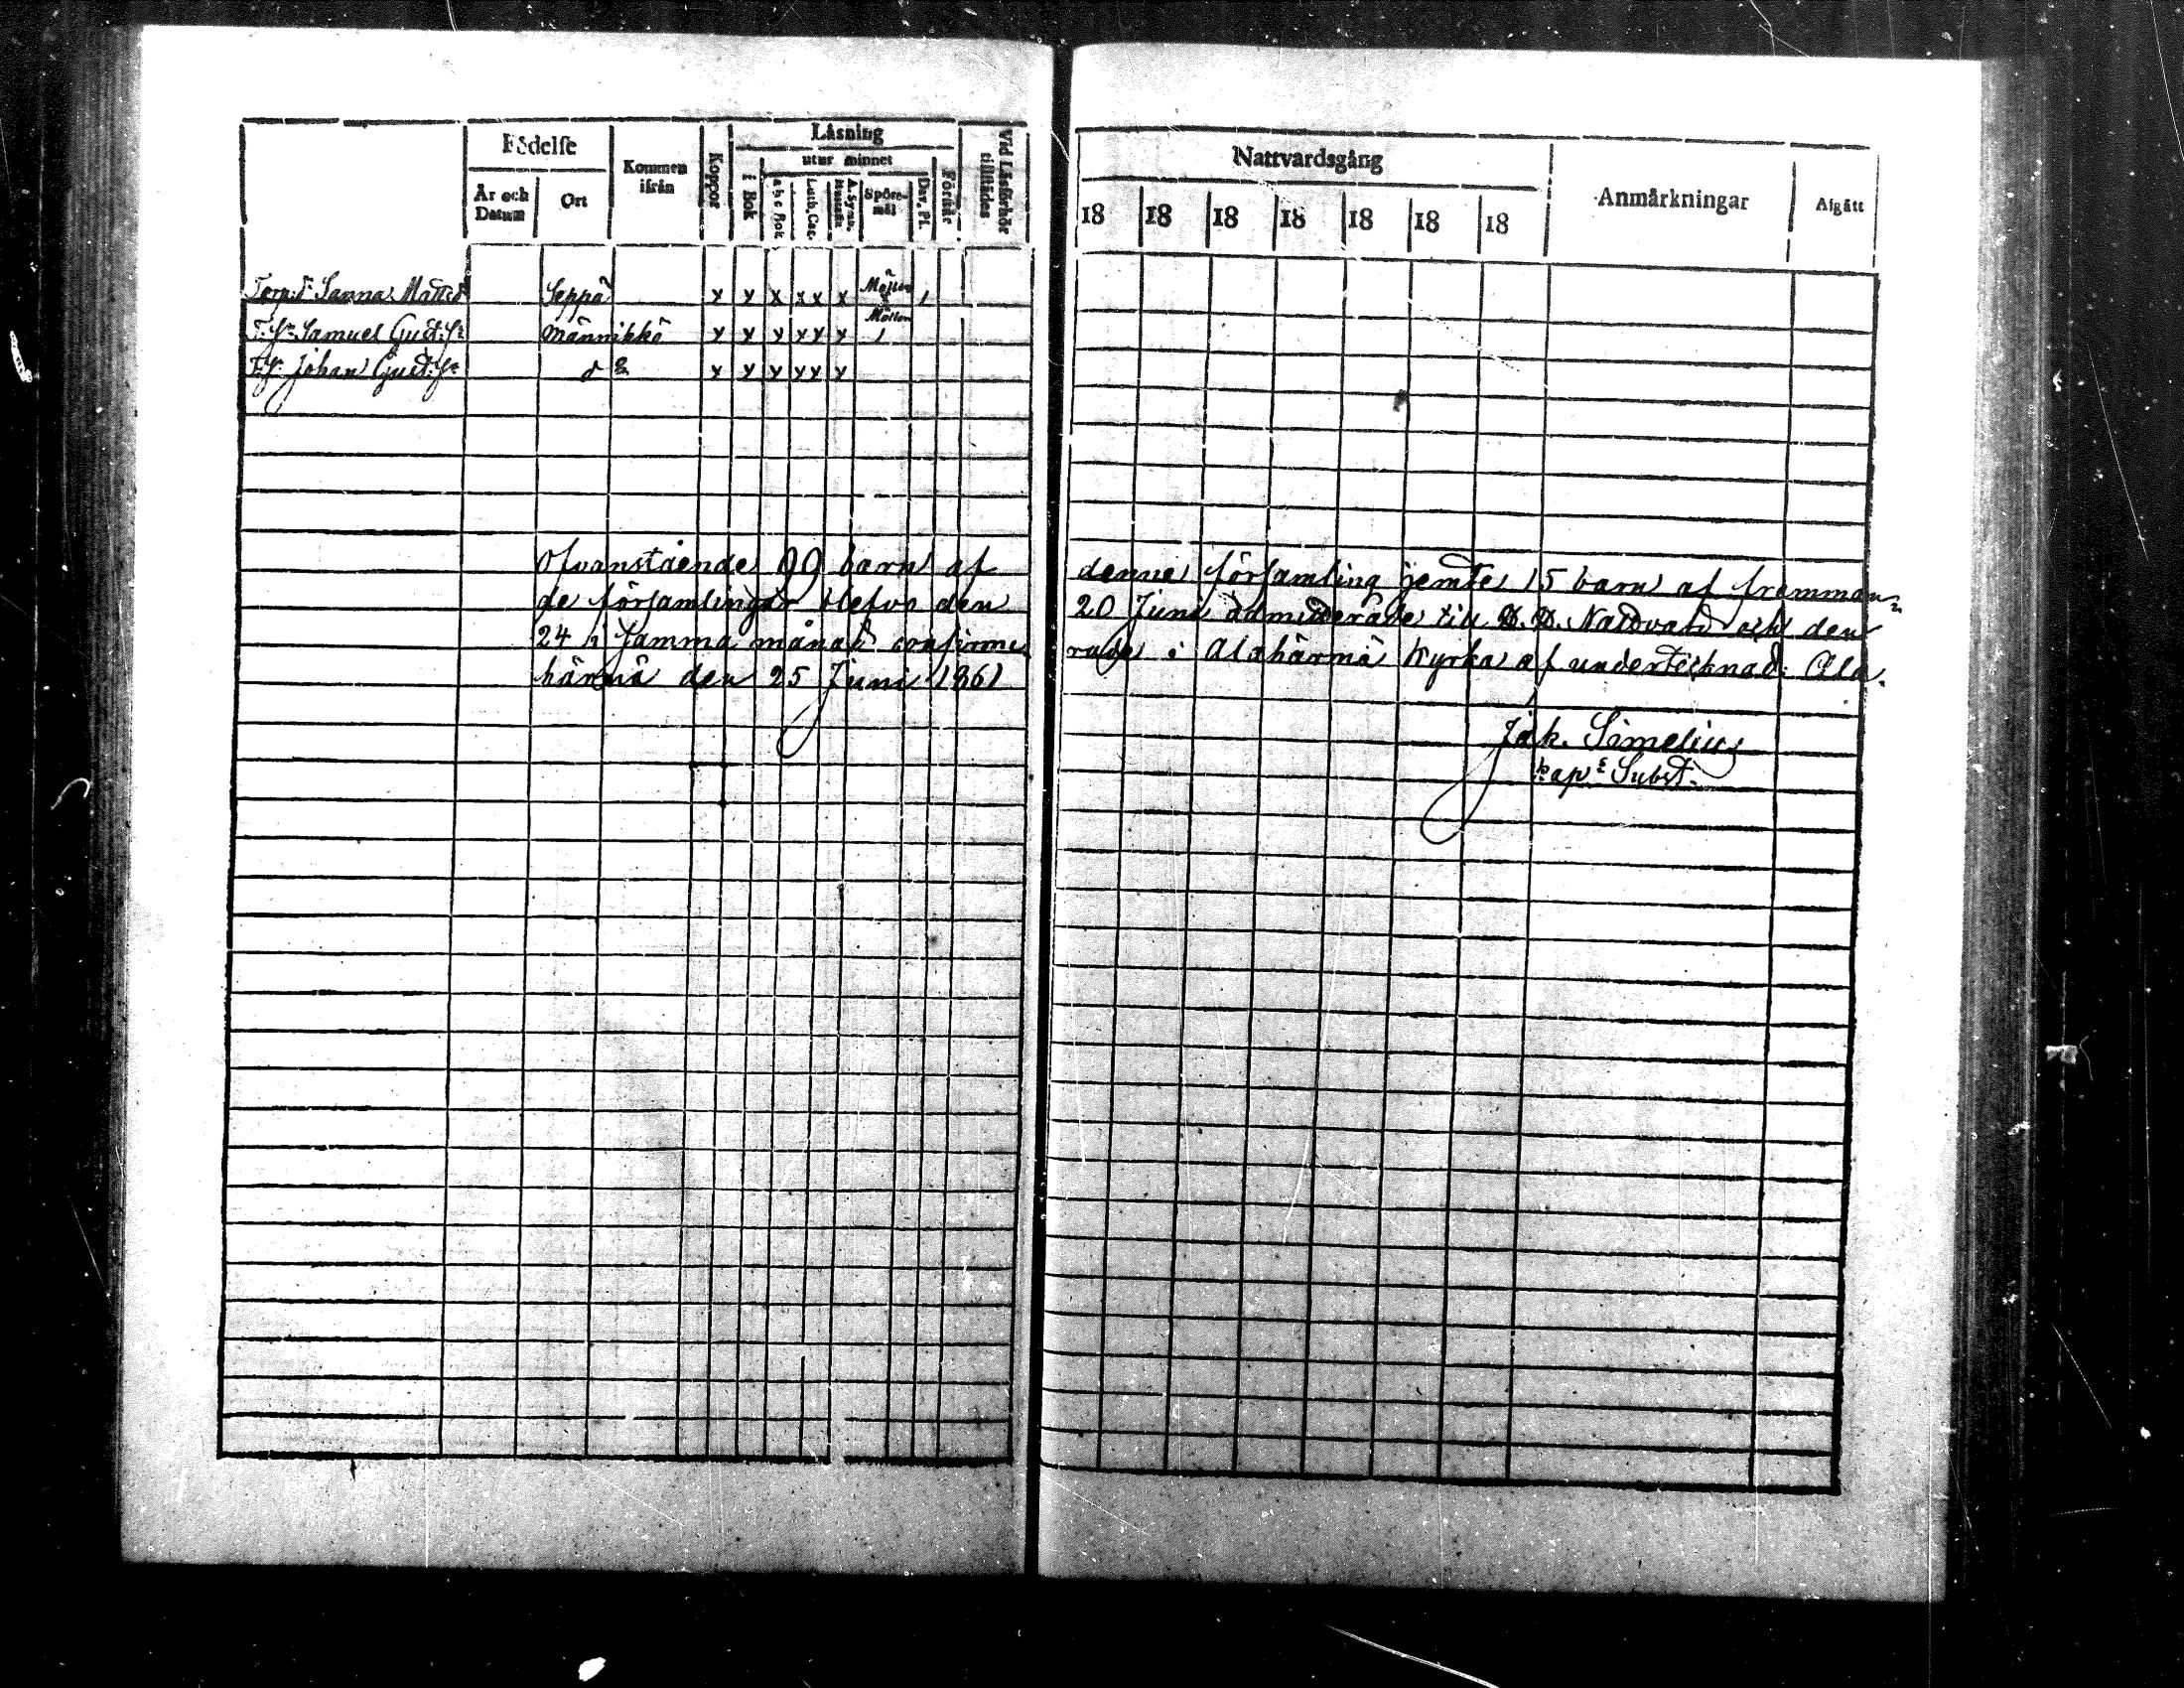 Födelse
Kommen ifrån
Koppor
Läsning
utur minnet
i Bok
a b c Bok
Luth. Cat.
A. Symb.
Spörs-mål
Dav. Ps.
Förstår
Vid Läsförhör tillstädes
År och Datum
Ort
Nattvardsgång
Anmärkningar
Afgått
18 18 18 18 18 18 18
Torp:d:r Sanna Matts:d:r Seppä x x x x x x 1
T:S:n Samuel Gust:S:n Männikkö x x x x x x 1
T:S:n Johan Gust:S:n d:o x x x x x x
Ofvanstående 99 barn af denna församling jemte 15 barn af fremman-
de församlingar blefvo den 20 Juni admitterade till H. H. Nattvard och den
24 i samma månad confirme- rade i Alahärmä kyrka af undertecknad. Ala-
härmä den 25 Juni 1861
Jak. Simelius
kap:s Subst: